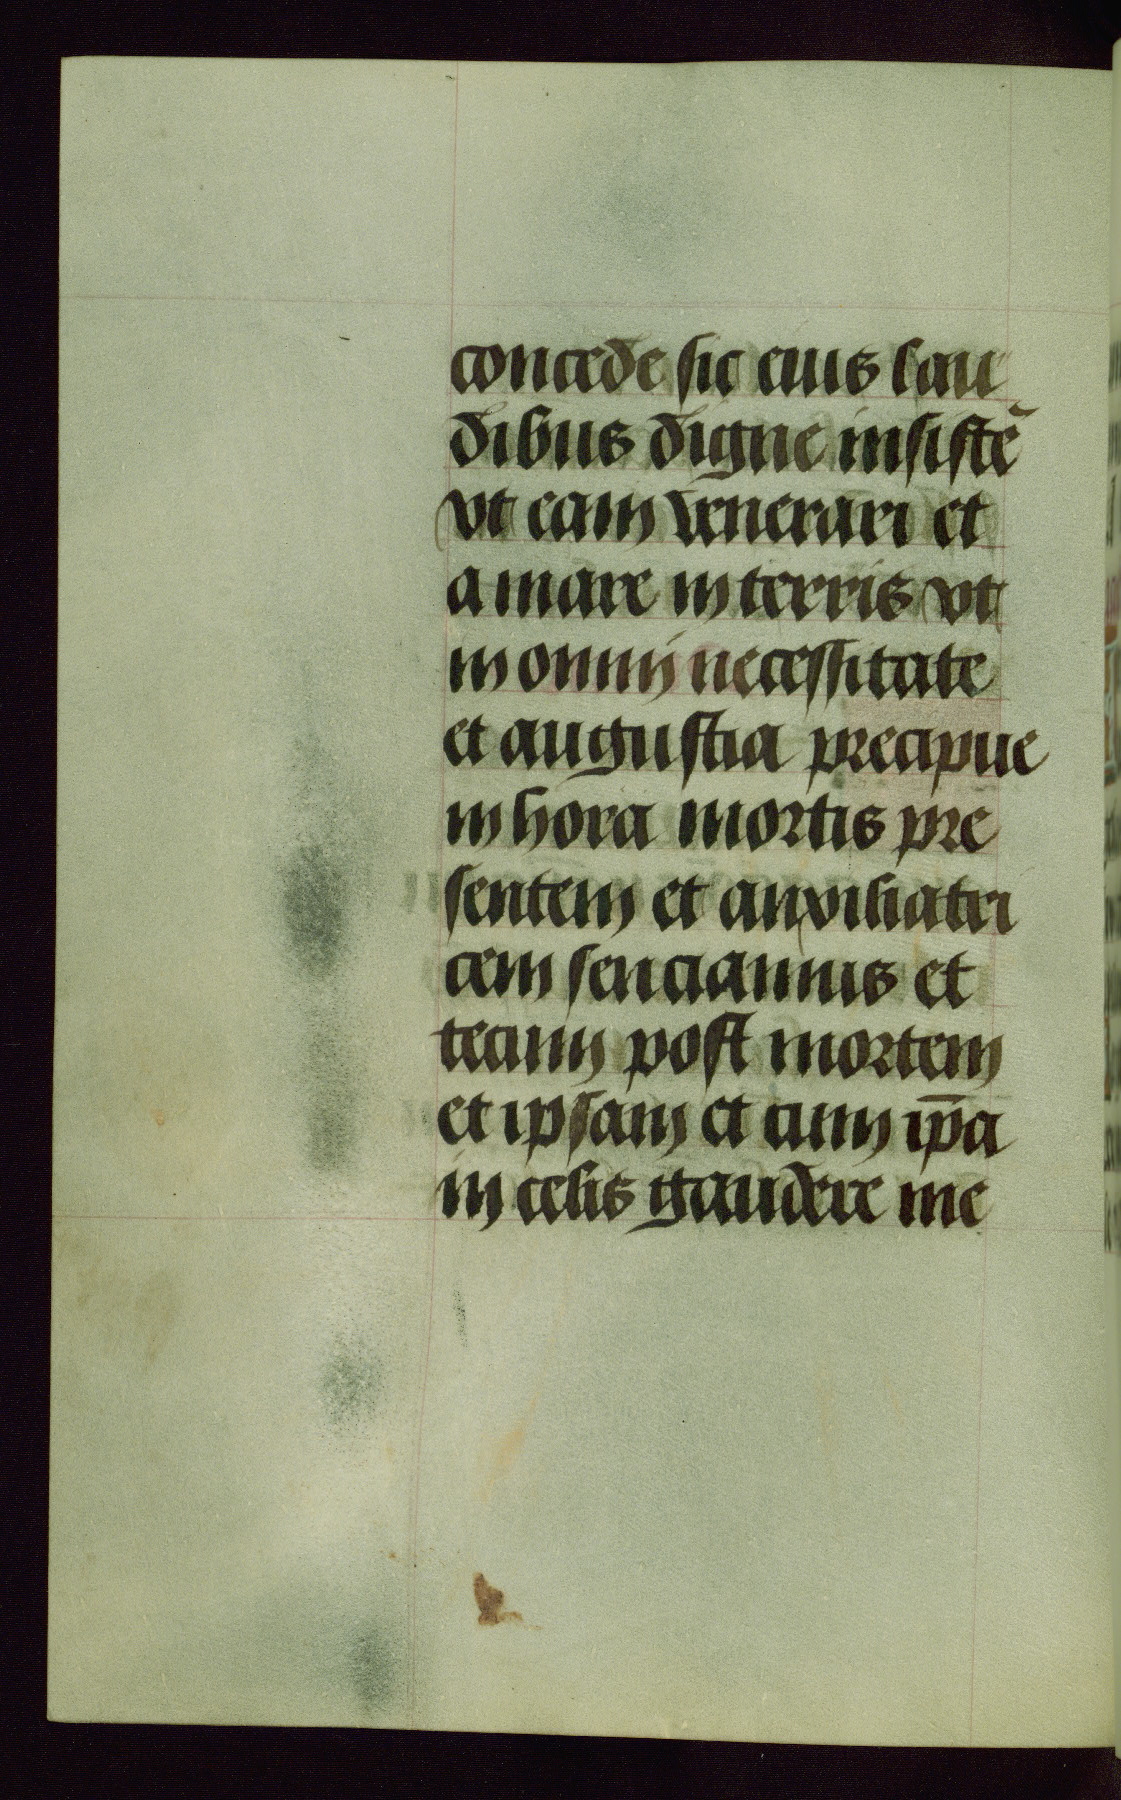 concede sic eius lau
dibus digne insistē
vt eam venerari et
amare in terris vt
in omni necessitate
et angustia precipue
in hora mortis pre
sentem et auxiliatri
cem senciamus et
tecum post mortem
et ipsam et cum ip̄a
in celis gaudere me